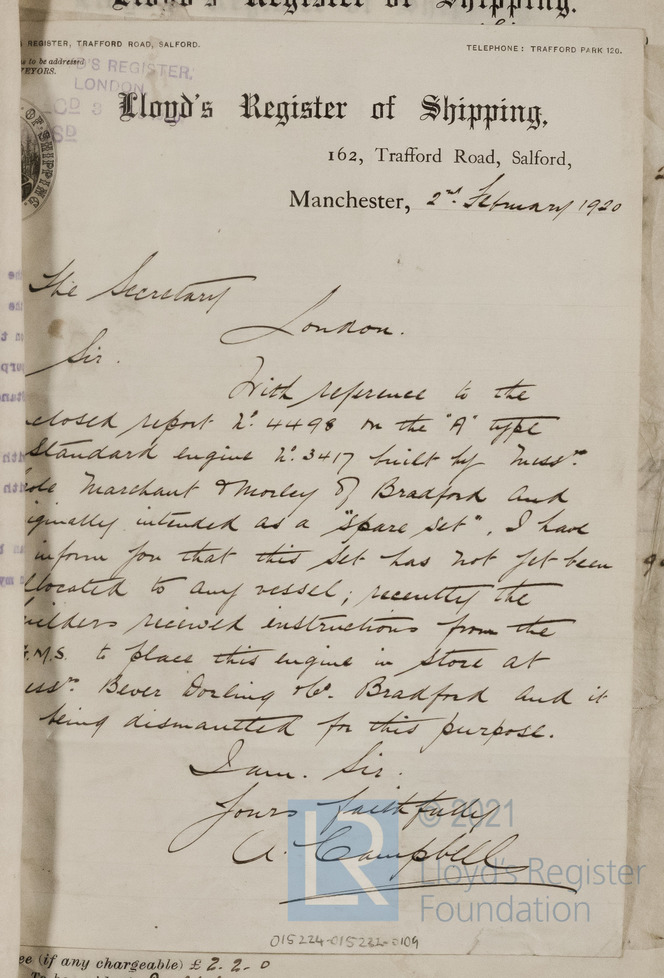 Lloyd's Register of Shipping.
REGISTER, TRAFFORD ROAD, SALFORD.
TELEPHONE: TRAFFORD PARK 126.
to be addressed
VEYORS.
D'S REGISTER,
LONDON
Lloyd's Register of Shipping,
162, Trafford Road, Salford,
Manchester, 2nd February 1920
OF SHIPPING
The Secretary
London.
Sir.
With reference to the
closed report No. 4498 on the "A" type
Standard engine No. 3417 built by Messrs.
ole Marchant & Morley of Bradford and
iginally intended as a "spare set", I have
inform you that this set has not yet been
llocated to any vessel; recently the
uilders received instructions from the
.M.S. to place this engine in store at
essrs. Bever Dorling & Co. Bradford and it
being dismantled for this purpose.
I am. Sir.
Yours faithfully
A. Campbell
© 2021
LR
Lloyd's Register
Foundation
015224-015232-0109
ee (if any chargeable) £ 2. 2. 0